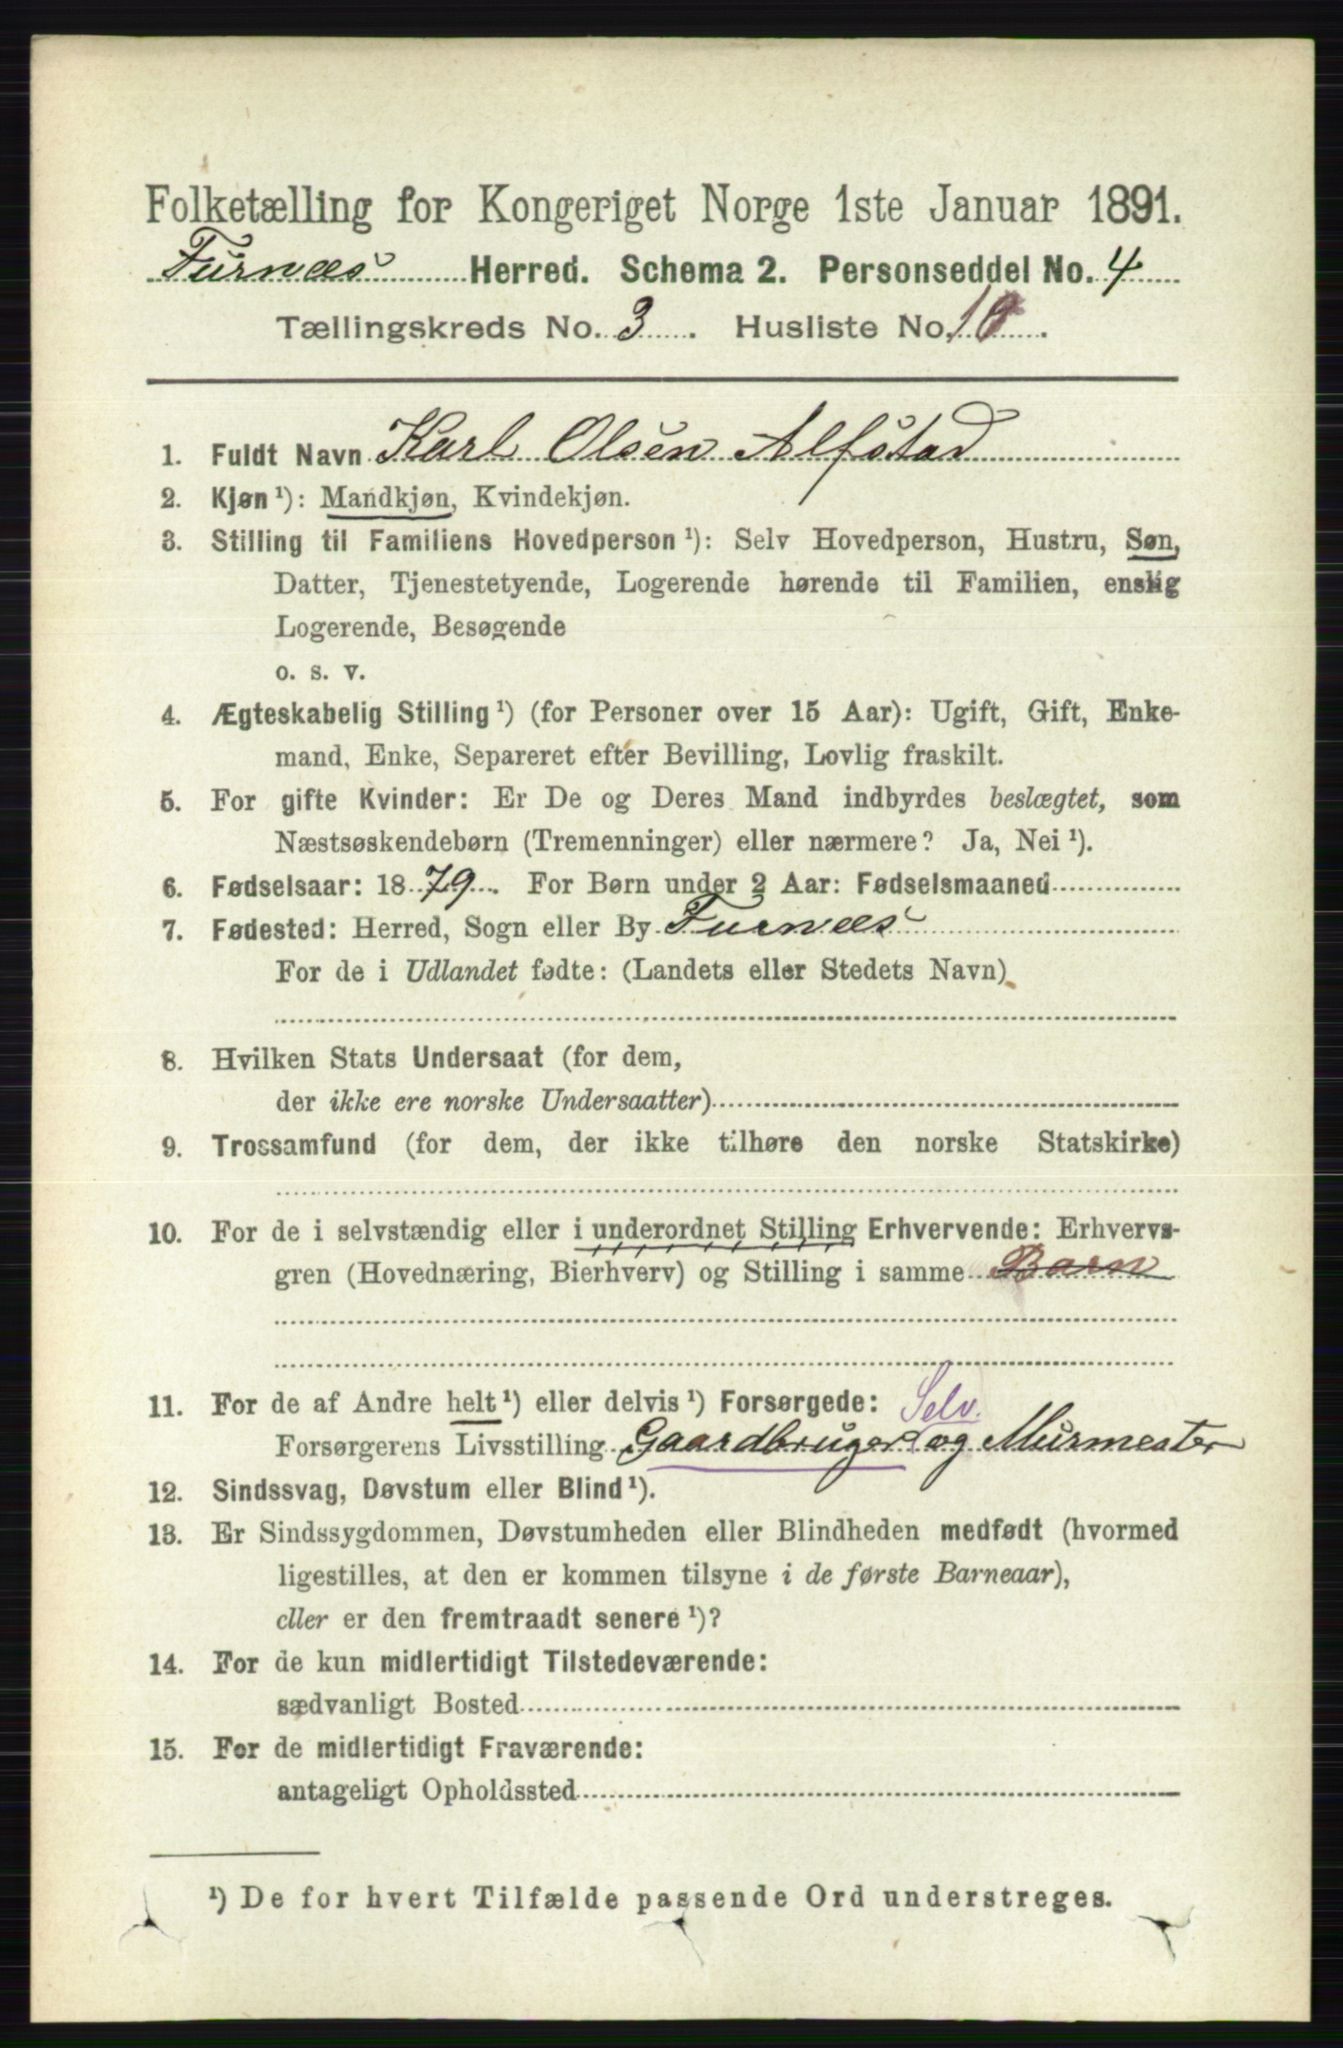 Folketælling for Kongeriget Norge 1ste Januar 1891.
Furnæs Herred. Schema 2. Personseddel No. 4
Tællingskreds No. 3. Husliste No. 10.
1. Fuldt Navn Karl Olsen Alfstad
2. Kjøn¹): Mandkjøn, Kvindekjøn.
3. Stilling til Familiens Hovedperson¹): Selv Hovedperson, Hustru, Søn,
Datter, Tjenestetyende, Logerende hørende til Familien, enslig
Logerende, Besøgende
o. s. v.
4. Ægteskabelig Stilling¹) (for Personer over 15 Aar): Ugift, Gift, Enke-
mand, Enke, Separeret efter Bevilling, Lovlig fraskilt.
5. For gifte Kvinder: Er De og Deres Mand indbyrdes beslægtet, som
Næstsøskendebørn (Tremenninger) eller nærmere? Ja, Nei¹).
6. Fødselsaar: 1879. For Børn under 2 Aar: Fødselsmaaned
7. Fødested: Herred, Sogn eller By Furnæs
For de i Udlandet fødte: (Landets eller Stedets Navn)
8. Hvilken Stats Undersaat (for dem,
der ikke ere norske Undersaatter)
9. Trossamfund (for dem, der ikke tilhøre den norske Statskirke)
10. For de i selvstændig eller i underordnet Stilling Erhvervende: Erhvervs-
gren (Hovednæring, Bierhverv) og Stilling i samme Barn
11. For de af Andre helt¹) eller delvis¹) Forsørgede: Selv.
Forsørgerens Livsstilling Gaardbruger og Murmester
12. Sindssvag, Døvstum eller Blind¹).
13. Er Sindssygdommen, Døvstumheden eller Blindheden medfødt (hvormed
ligestilles, at den er kommen tilsyne i de første Barneaar),
eller er den fremtraadt senere¹)?
14. For de kun midlertidigt Tilstedeværende:
sædvanligt Bosted
15. For de midlertidigt Fraværende:
antageligt Opholdssted
¹) De for hvert Tilfælde passende Ord understreges.